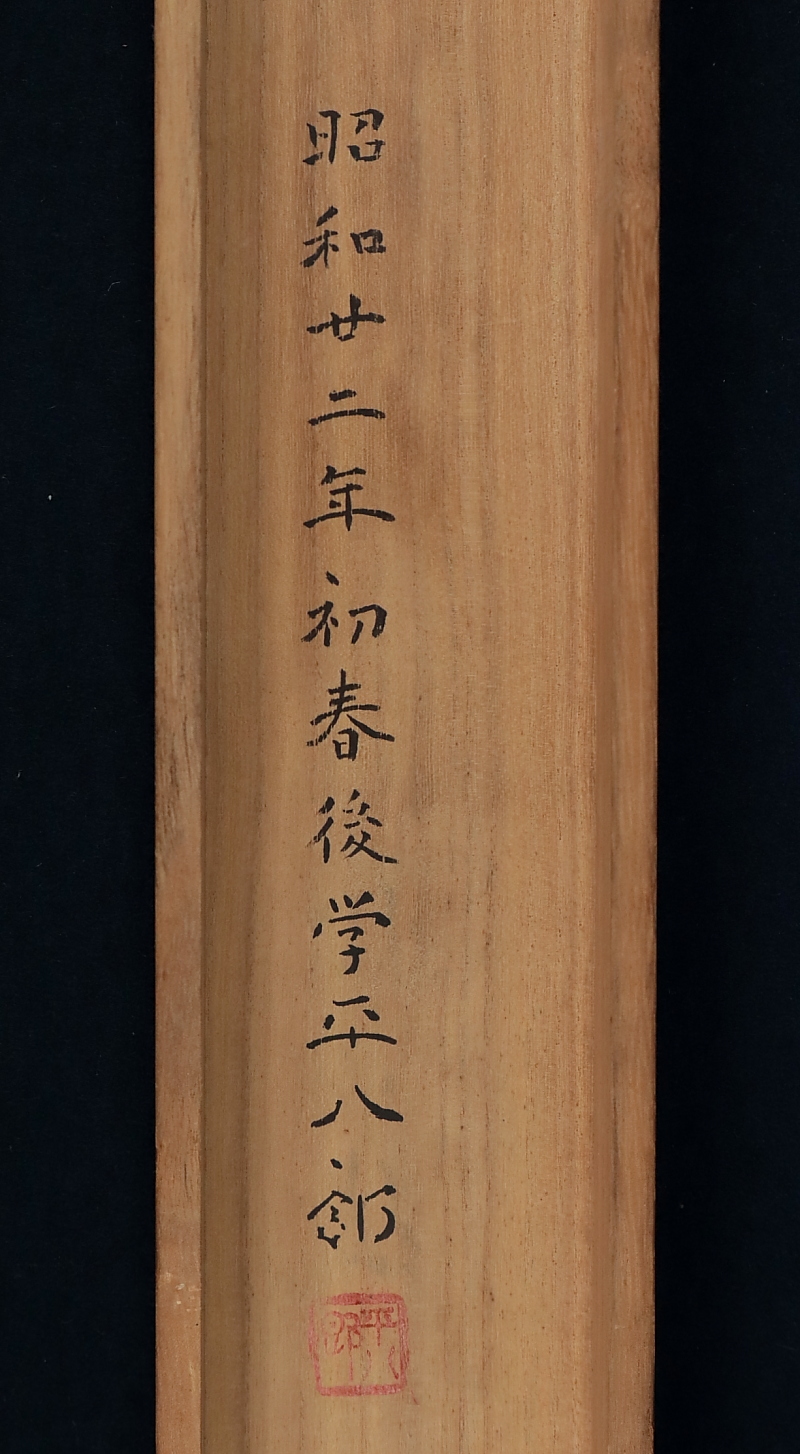 昭和廿二年初春後学平八郎
平八郎